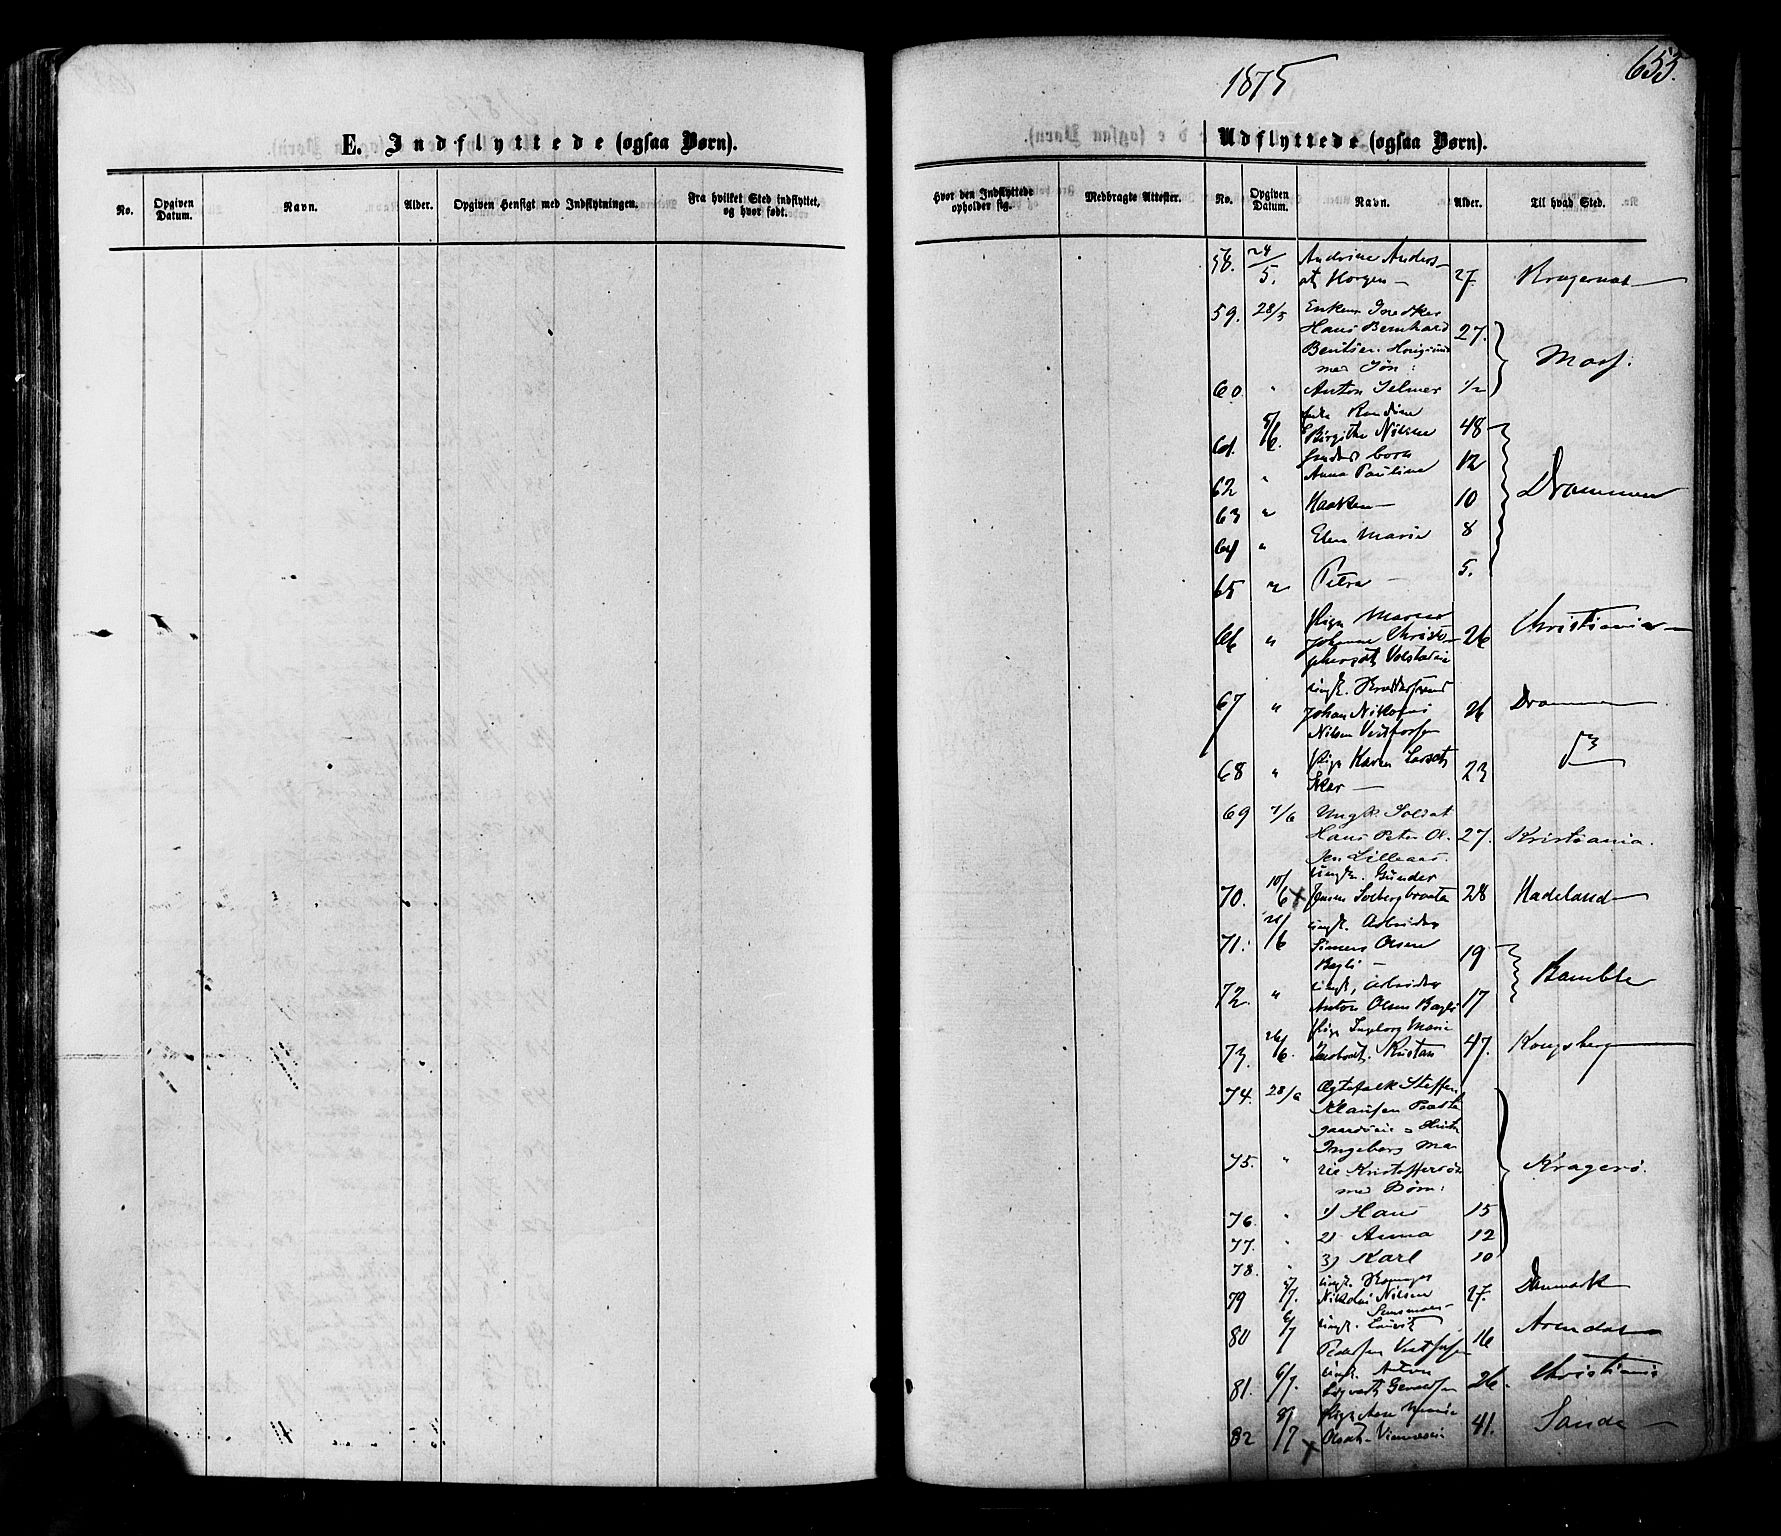 1875
655.
E. Indflyttede (ogsaa Børn).
Udflyttede (ogsaa Børn).
No. Opgiven Datum. Navn. Alder. Opgiven Hensigt med Indflytningen. Fra hvilket Sted indflyttet, og hvor født.
Hvor den Indflyttede opholder sig. Medbragte Attester. No. Opgiven Datum. Navn. Alder. Til hvad Sted.
58. 24/5. Andrine Anders-
Horgen — 27.
59. 28/5
Hans Bernhard 27.
Bentsen
med Søn: Moss.
60 " Anton Selmer 1/2
61. 5/6. Birgithe Nilsen 48
62 " Anna Pauline 12
Drammen
63 " Haaken — 10
64 " Elen Marie 8
65 " Petra — 5.
Pige Maren
66 " Johanne Christo- 26 Christiania —
67 " Johan Nikolai 26 Drammen
Nilsen Vestfossen
68 " Pige Karen Larsdt 23
69 7/6 Ungk. Soldat
Hans Peter Ol- 27. Kristiania.
sen Lilleaas.
Ungk. Gunder
70. 10/6 x Jensen Solbergbraata 28 Hadeland —
Ungk. Arbeider
71. 21/6 Simen Olsen 19
Bagli —
Bamble
Ungk. Arbeider
72. " Anton Olsen Bagli 17
Pige Ingeborg Marie
73. 26/6. 47. Kongsberg
74. 28/6 Ægtefolk Steffen
Klausen
75. " Ingeborg Ma-
rie Kristoffersdt Kragerø.
med Børn:
76. " 1) Hans 15
77. " 2) Anna 12
78. " 3) Karl 10
79 Nikolai Nilsen 27. Danmark
80 6/7 Ungk. Lauritz
Pedersen Vestfossen 16 Arendal
81. 6/7. Ungk. Anton
26. Christiania
82 8/7 x Pige Anne Marie
Olsdt. 41. Sande —